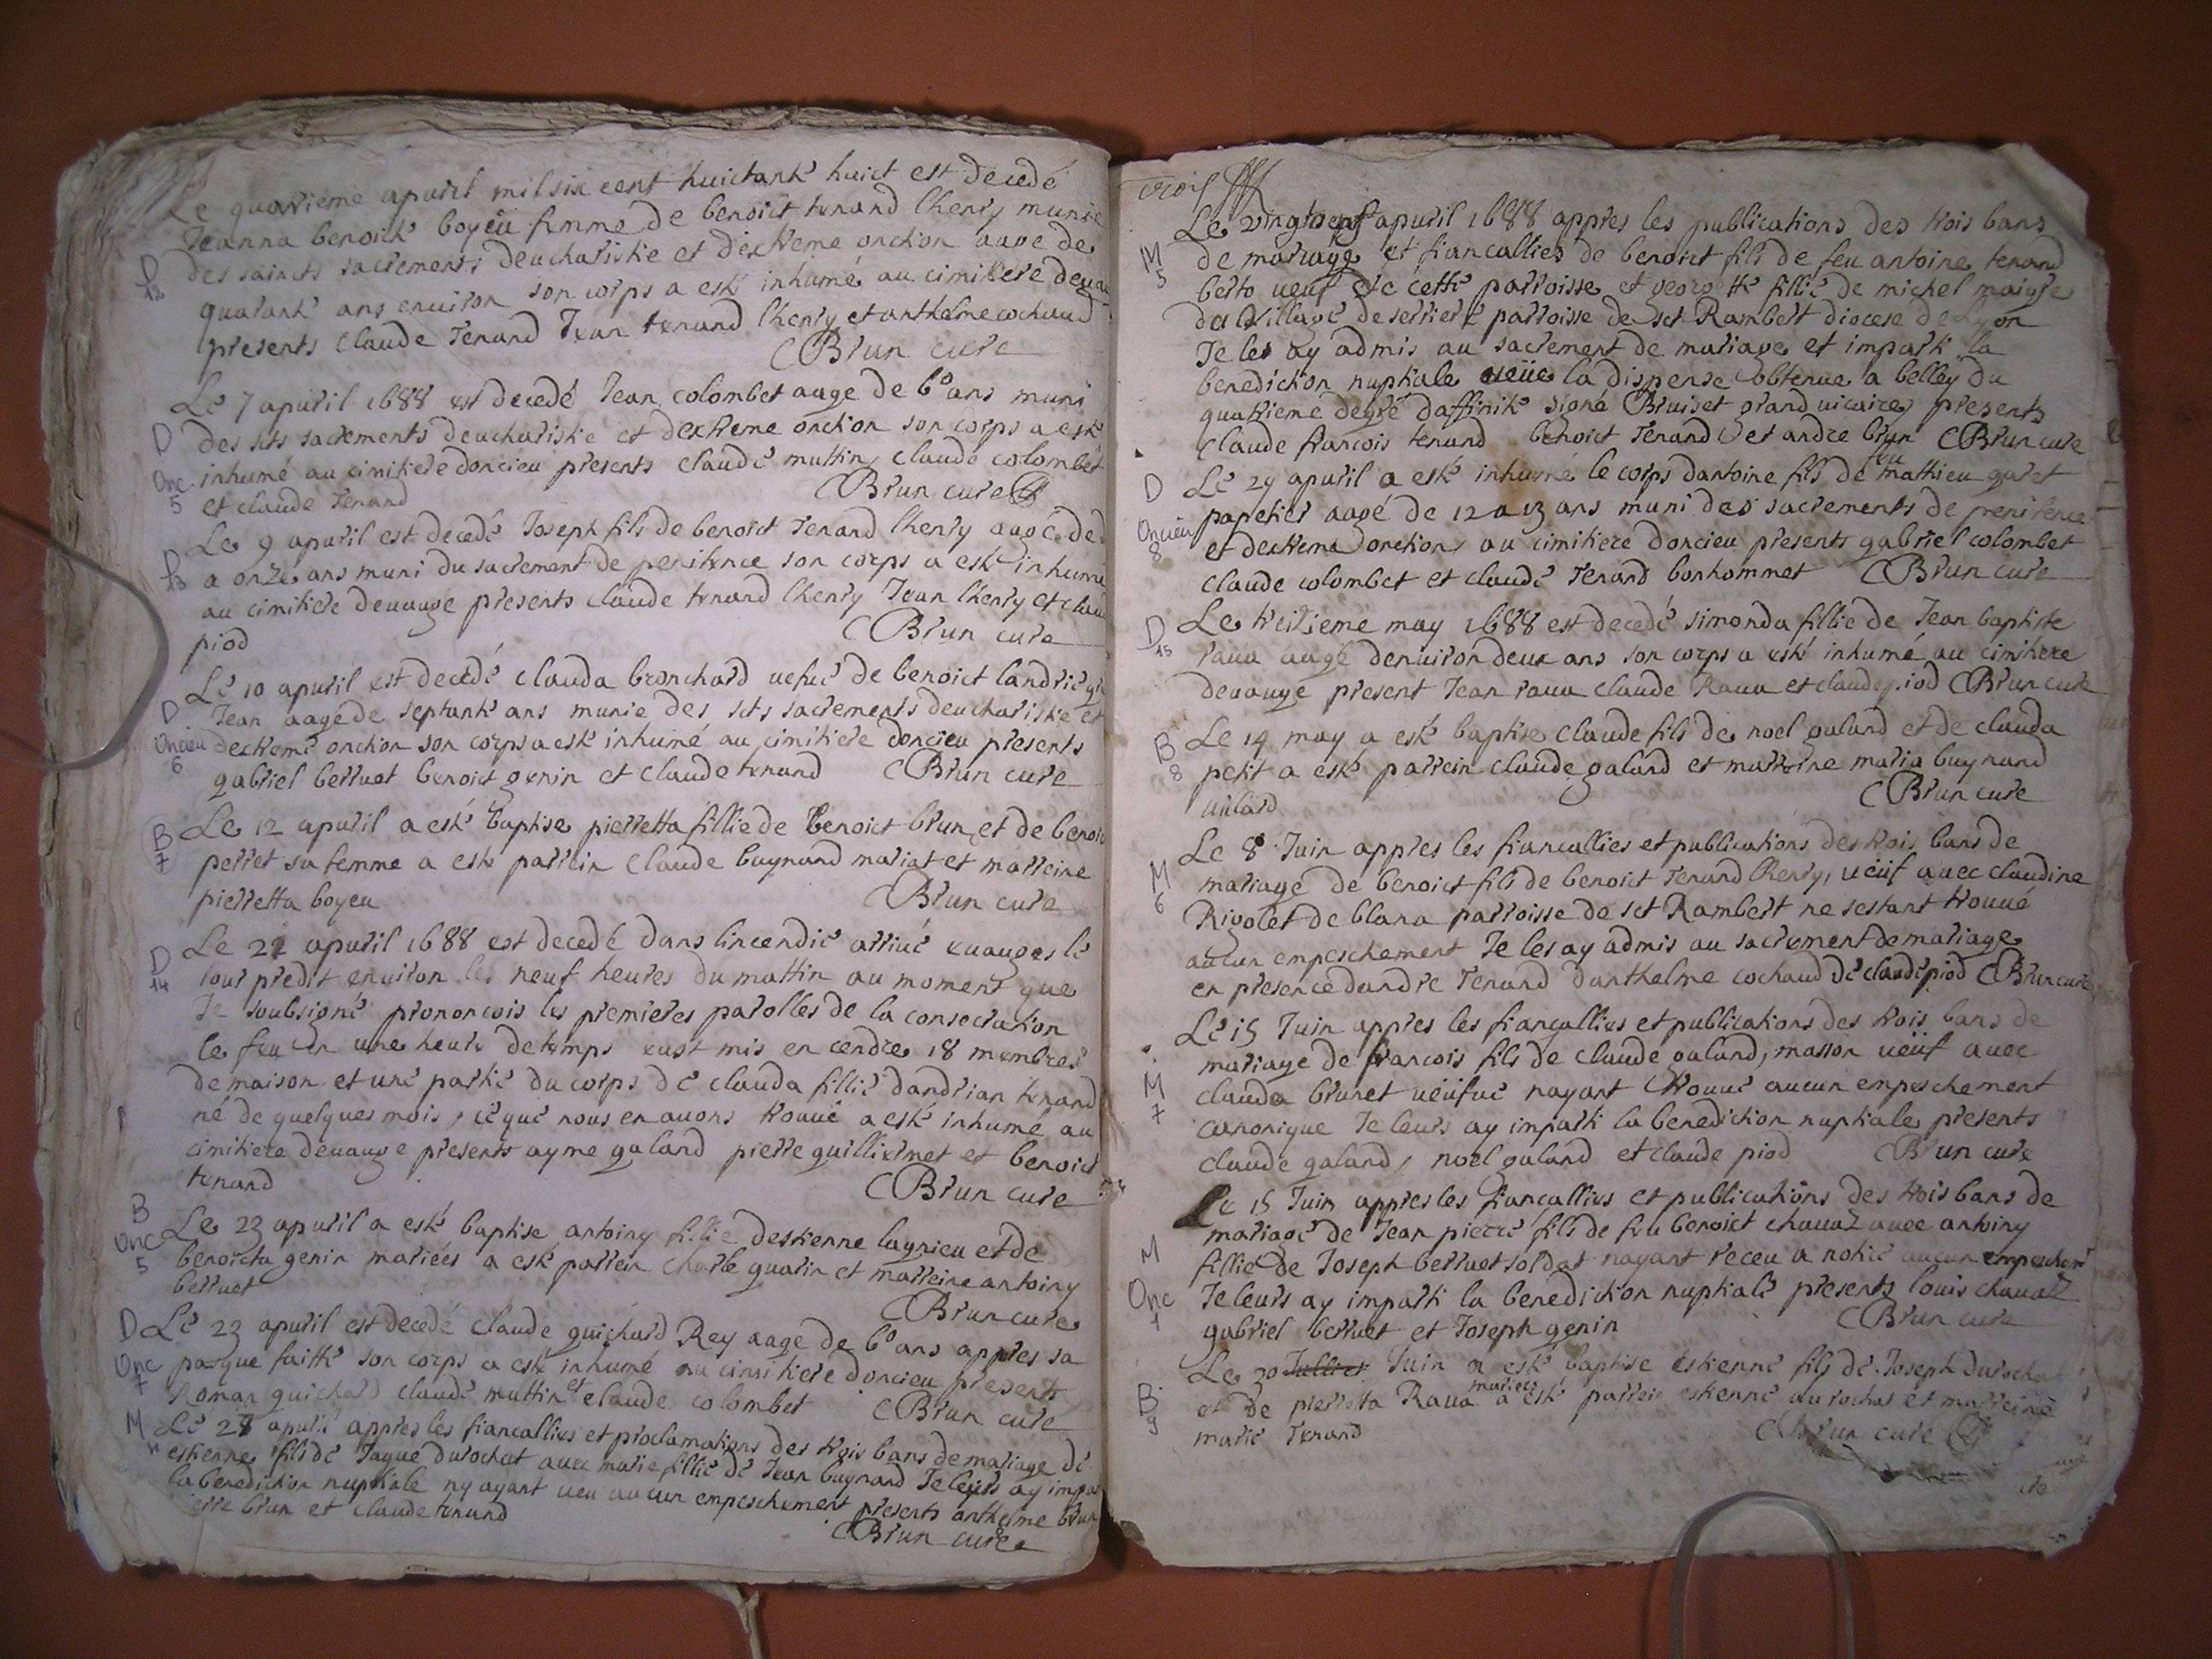 Le quatrieme apuril mil six cent huictante huict est decedé
Jeanna benoicte boyeu femme de benoict tenand lhenry munie
des saincts sacrements deucharistie et dextreme onction aage de
D
12
quarante ans enuiron son corps a esté inhumé au cimitiere deuau
presents claude Tenand Jean tenand lhenry et anthelme cochaud
Brun curé
Le 7 apuril 1688 est decedé Jean colombet aage de 60 ans muni
D
des sts sacrements deucharistie et dextreme onction son corps a esté
Onc
5
inhumé au cimitiere doncieu presents claude muttin, claude colombet
et claude Tenand Brun cure
Le 9 apuril est decedé Joseph fils de benoict Tenand lhenry aagé de
D
13
a onze ans muni du sacrement de penitence son corps a esté inhumé
au cimitiere deuauge presents claude tenand lhenry Jean lhenry et claud
piod Brun cure
Le 10 apuril est decedé clauda bronchard uefue de benoict landrié
D
Jean aagé de septante ans munie des sts sacrements deucharistie et
Oncieu
6
dextreme onction son corps a esté inhumé au cimitiere doncieu presents
gabriel betruet benoict genin et claude tenand Brun cure
B
7
Le 12 apuril a esté baptise pierretta fillie de benoict brun et de benoi
perret sa femme a esté parrein claude buynand mariat et marreine
pierretta boyeu Brun cure
D
14
Le 21 apuril 1688 est decedé dans lincendié arriué euauges le
iour predit enuiron les neuf heures du mattin au moment que
Je soubsigné prononcois les premieres parolles de la consecration
le feu en une heure detemps eust mis en cendres 18 membres
de maison et une partie du corps de clauda fillié dandrian tenand
né de quelques mois, cé qué nous en auons trouué a esté inhumé au
cimitiere deuauge presents ayme galand pierre guilliermet et benoict
tenand Brun cure
B
Onc
5
Le 23 apuril a esté baptise antoiny fillie destienne lagnieu et de
benoicta genin mariées a esté parrein charle guarin et marreine antoiny
betruet Brun cure
D
Onc
7
Le 23 apuril est decedé claude guichard Rey aage de 60 ans appres sa
pasque faitte son corps a esté inhumé au cimitiere doncieu presents
Roman guichard claude muttin et claude colombet Brun cure
M
4
Le 27 apuril appres les fiancallies et proclamations des trois bans de mariage de
estienne fils de Jaque durochat auec marie fillié de Jean buynand Je leurs ay impar
la benediction nuptiale ny ayant ueu aucun empeschement presents anthelme brun
pierre brun et claude tenand Brun cure
trois
M
5
Le vingtneuf apuril 1688 appres les publications des trois bans
de mariage et fiancallies de benoict fils de feu antoine tenand
berto ueuf de cette parroisse et georgette fillié de michel maigre
du village de serriere parroisse de sct Rambert diocese de Lyon
Je les ay admis au sacrement de mariage et imparti la
benediction nuptiale ueüe la dispense obtenue a belley du
quatrieme degré daffinité signé Bruiset grand uicaire, presents
claude francois tenand benoict Tenand et andre brun Brun cure
D
Oncieu
8
Le 29 apuril a esté inhumé le corps dantoine fils de feu mathieu garet
papetier aagé de 12 a 13 ans muni des sacrements de penitence
et dextreme onction au cimitiere doncieu presents gabriel colombet
claude colombet et claude Tenand bonhommet Brun cure
D
15
Le treizieme may 1688 est decedé simonda fillie de Jean baptiste
raua aagé denuiron deux ans son corps a esté inhumé au cimitiere
deuauge present Jean raua claude Raua et claude piod Brun cure
B
8
Le 14 may a esté baptise claude fils de noel galand et de clauda
petit a esté parrein claude galand et marreine maria buynand
uilard Brun cure
M
6
Le 8 Juin appres les fiancallies et publications des trois bans de
mariage de benoict fils de benoict Tenand lhenry, ueüf auec claudine
Rigolet de blana parroisse de sct Rambert ne sestant trouué
aucun empeschement Je les ay admis au sacrement de mariage
en presence dandre Tenand danthelme cochaud de claude piod Brun cure
M
7
Le 15 Juin appres les fiancallies et publications des trois bans de
mariage de francois fils de claude galand, masson ueüf auec
clauda brunet ueüfue nayant trouué aucun empeschement
canonique Je leurs ay imparti la benediction nuptiale presents
claude galand, noel galand et claude piod Brun cure
M
Onc
1
Le 15 Juin appres les fiancallies et publications des trois bans de
mariage de Jean pierre fils de feu benoict chauaz auec antoiny
fillié de Joseph betruet soldat nayant receu a notice aucun empechem
Je leurs ay imparti la benediction nuptiale presents louis chauaz
gabriel betruet et Joseph genin Brun cure
B
9
Le 30 Julliet Juin a esté baptise estienne fils de Joseph durochat
et de pierretta Raua mariées a esté parrein estienne durochat et marreine
marie Tenand Brun cure